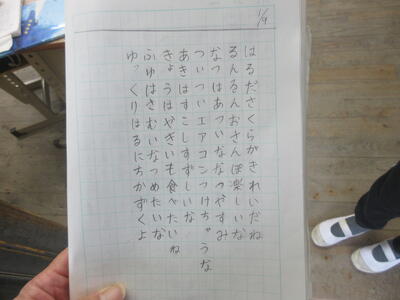 1/9
はるださくらがきれいだね
るんるんおさんぽ楽しいな
なつはあついななつやすみ
ついついエアコンつけちゃうな
あきはすこしすずしいな
きょうはやきいも食べたいね
ふゆはさむいなつめたいな
ゆっくりはるにちかずくよ